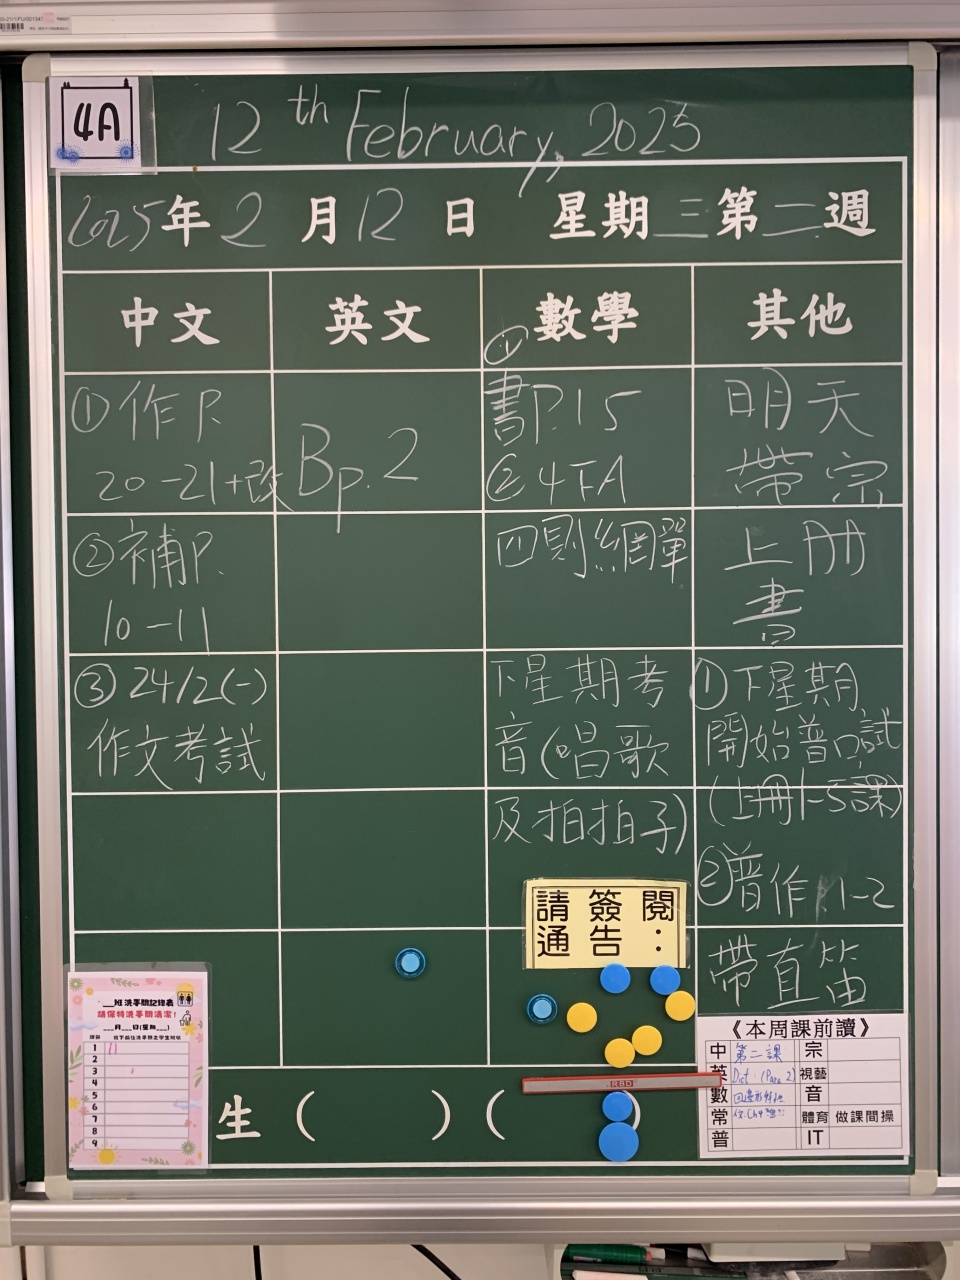 4A
12th February, 2025
2025年2月12日 星期三第二週
中文
英文
數學
其他
①作P.
20-21+改
②補P.
10-11
③24/2(一)
作文考試
Bp.2
①
書P.15
②4FA
四則網單
下星期考
音(唱歌
及拍拍子)
明天
帶宗
上冊
書
①下星期
開始普口試
(上冊1-5課)
②普作 1-2
帶直笛
請簽閱
通告：
班洗手間記錄表
請保持洗手間清潔！
月 日(星期 )
1
2
3
4
5
6
7
8
9
生 ( ) ( )
RSD
《本周課前讀》
中 第二課 宗
英 Dict. (Para 2) 視藝
數 音
常 體育 做課間操
普 IT